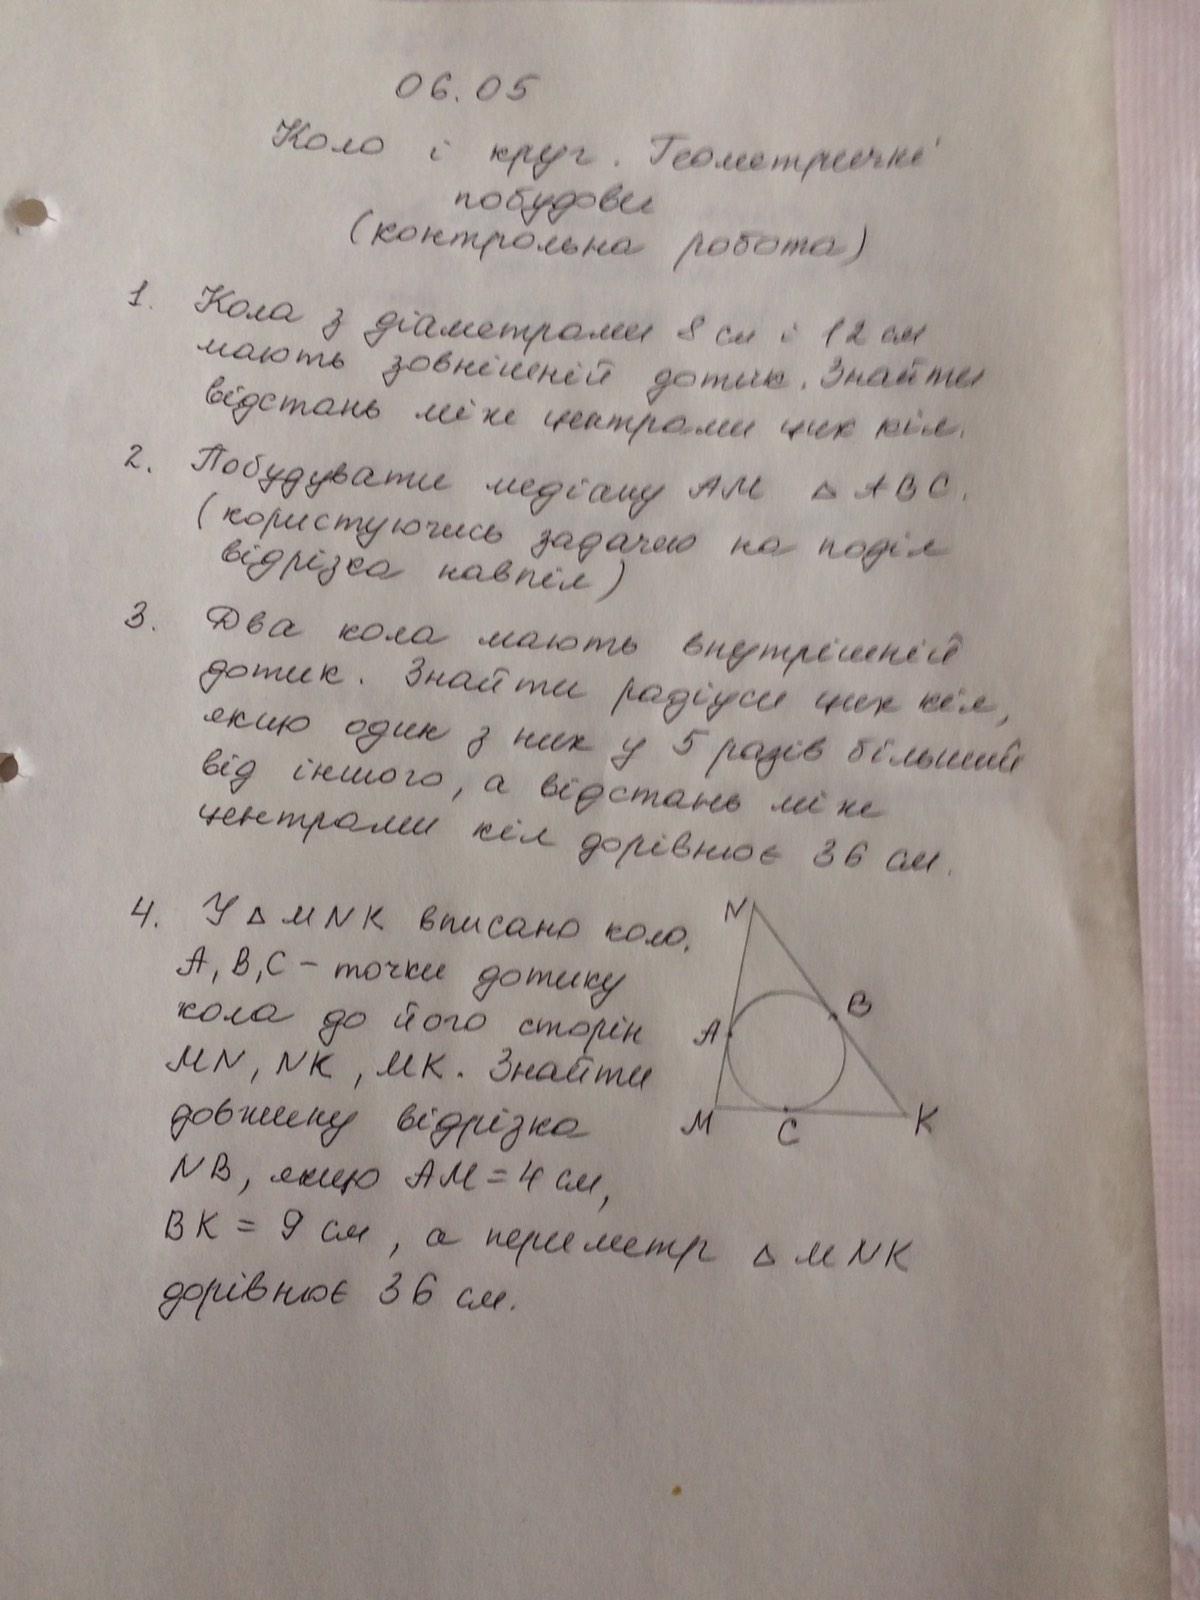 06.05
Коло і круг. Геометричні
побудови
(контрольна робота)
1. Кола з діаметрами 8 см і 12 см
мають зовнішній дотик. Знайти
відстань між центрами цих кіл.
2. Побудувати медіану AM △ABC.
(користуючись задачею на поділ
відрізка навпіл)
3. Два кола мають внутрішній
дотик. Знайти радіуси цих кіл,
якщо один з них у 5 разів більший
від іншого, а відстань між
центрами кіл дорівнює 36 см.
4. У △MNK вписано коло.
A, B, C – точки дотику
кола до його сторін
MN, NK, MK. Знайти
довжину відрізка
NB, якщо AM = 4 см,
BK = 9 см, а периметр △MNK
дорівнює 36 см.
N
B
A
M C K